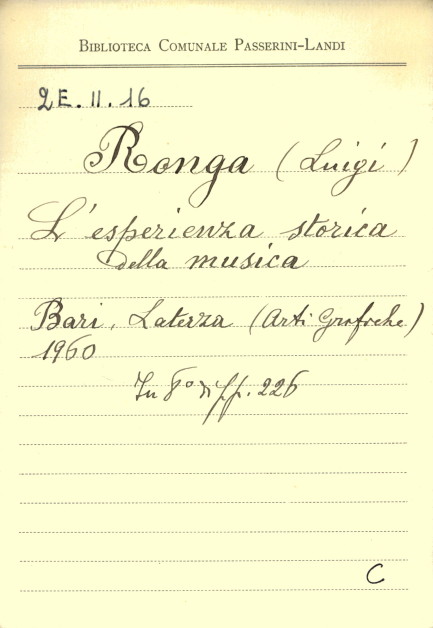 BIBLIOTECA COMUNALE PASSERINI-LANDI
2E. II. 16
Ronga (Luigi)
L'esperienza storica
della musica
Bari, Laterza (Arti Grafiche)
1960
In 8° di pp. 226
C